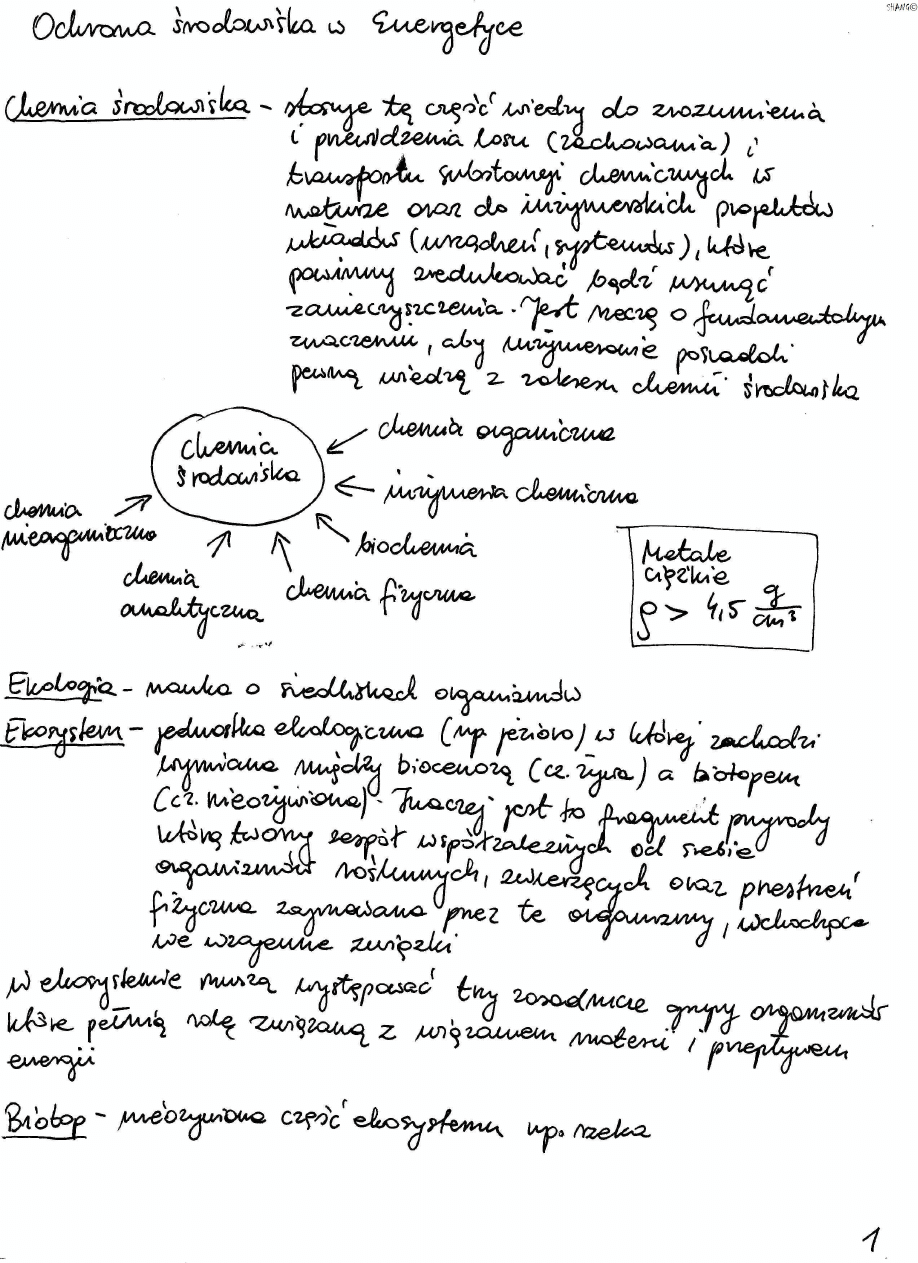 SHANG©
Ochrona środowiska w Energetyce
Chemia środowiska - stosuje tę część wiedzy do zrozumienia
i przewidzenia losu (zachowania) i
transportu substancji chemicznych w
naturze oraz do inżynierskich projektów
układów (urządzeń, systemów), które
powinny zredukować bądź usunąć
zanieczyszczenia. Jest rzeczą o fundamentalnym
znaczeniu, aby inżynierowie posiadali
pewną wiedzę z zakresu chemii środowiska
Chemia
środowiska
chemia organiczna
inżynieria chemiczna
biochemia
chemia fizyczna
chemia
analityczna
chemia
nieorganiczna
Metale
ciężkie
ρ > 4,5 g/cm³
Ekologia - nauka o siedliskach organizmów
Ekosystem - jednostka ekologiczna (np. jezioro) w której zachodzi
wymiana między biocenozą (cz. żywa) a biotopem
(cz. nieożywiona). Inaczej jest to fragment przyrody
którą tworzy zespół współzależnych od siebie
organizmów roślinnych, zwierzęcych oraz przestrzeń
fizyczna zajmowana przez te organizmy, wchodzące
we wzajemne związki
W ekosystemie muszą występować trzy zasadnicze grupy organizmów
które pełnią rolę związaną z wiązaniem materii i przepływem
energii
Biotop - nieożywiona część ekosystemu np. rzeka
1